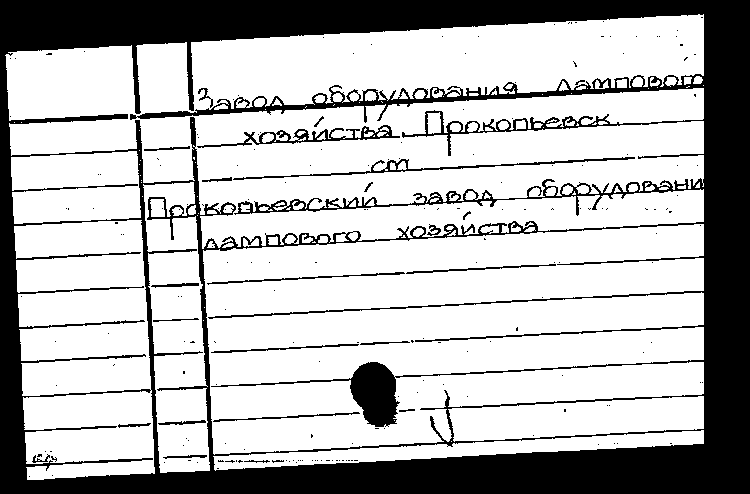 Завод оборудования лампового
хозяйства. Прокопьевск.
см
Прокопьевский завод оборудовани
лампового хозяйства